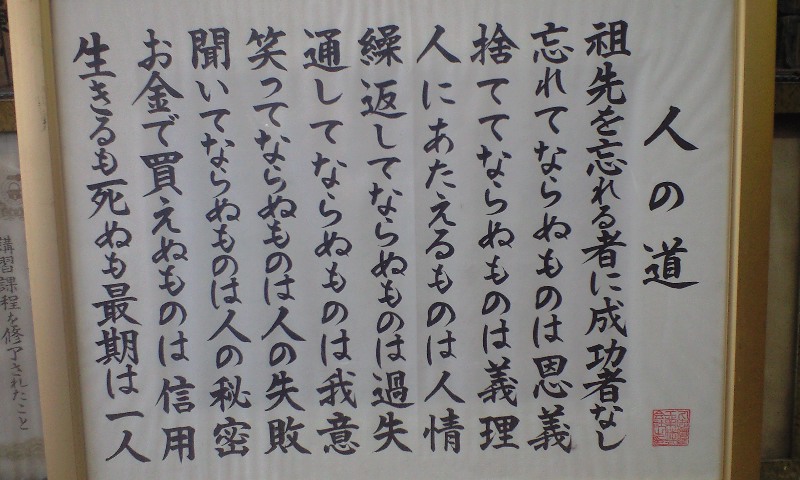 人の道
祖先を忘れる者に成功者なし
忘れてならぬものは恩義
捨ててならぬものは義理
人にあたえるものは人情
繰返してならぬものは過失
通してならぬものは我意
笑ってならぬものは人の失敗
聞いてならぬものは人の秘密
お金で買えぬものは信用
生きるも死ぬも最期は一人
講習課程を修了されたこと